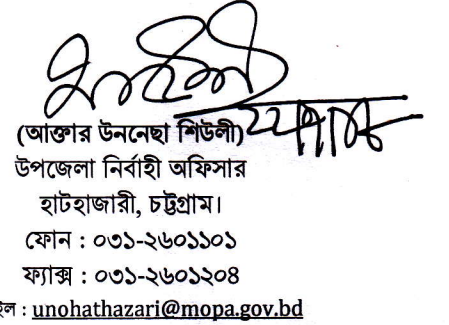 (আক্তার উননেছা শিউলী)
উপজেলা নির্বাহী অফিসার
হাটহাজারী, চট্টগ্রাম।
ফোন : ০৩১-২৬০১১০১
ফ্যাক্স : ০৩১-২৬০১২০৪
ইল : unohathazari@mopa.gov.bd